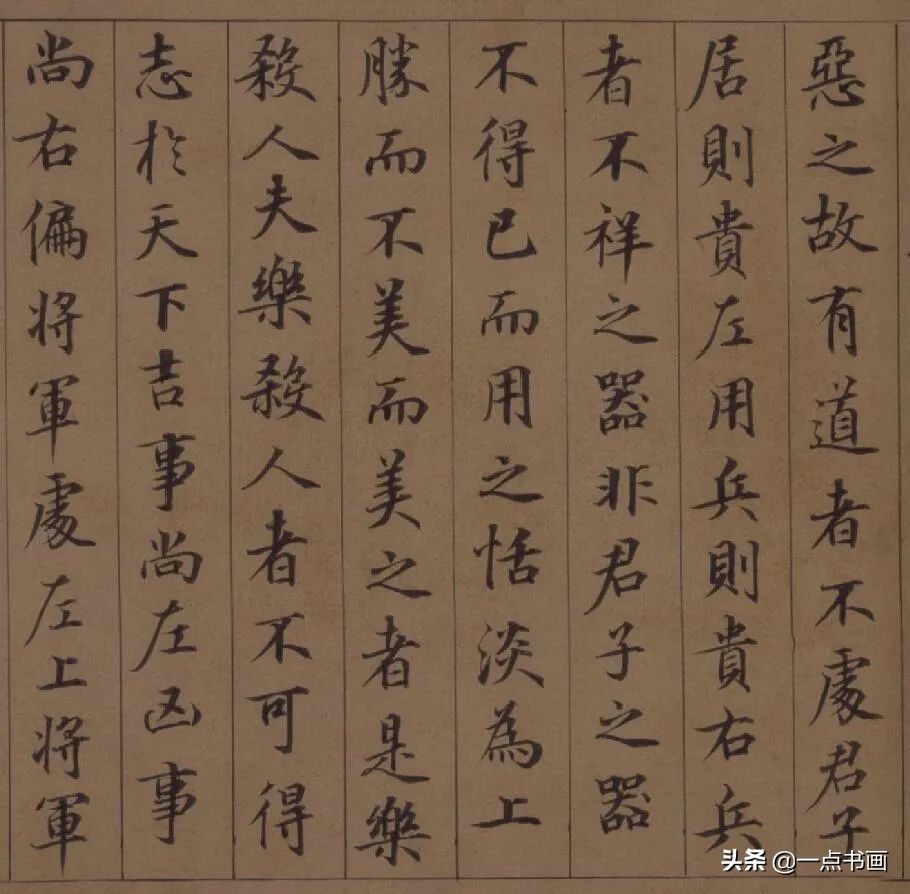 惡之故有道者不處君子
居則貴左用兵則貴右兵
者不祥之器非君子之器
不得已而用之恬淡為上
勝而不美而美之者是樂
殺人夫樂殺人者不可得
志於天下吉事尚左凶事
尚右偏將軍處左上將軍
头条 @一点书画